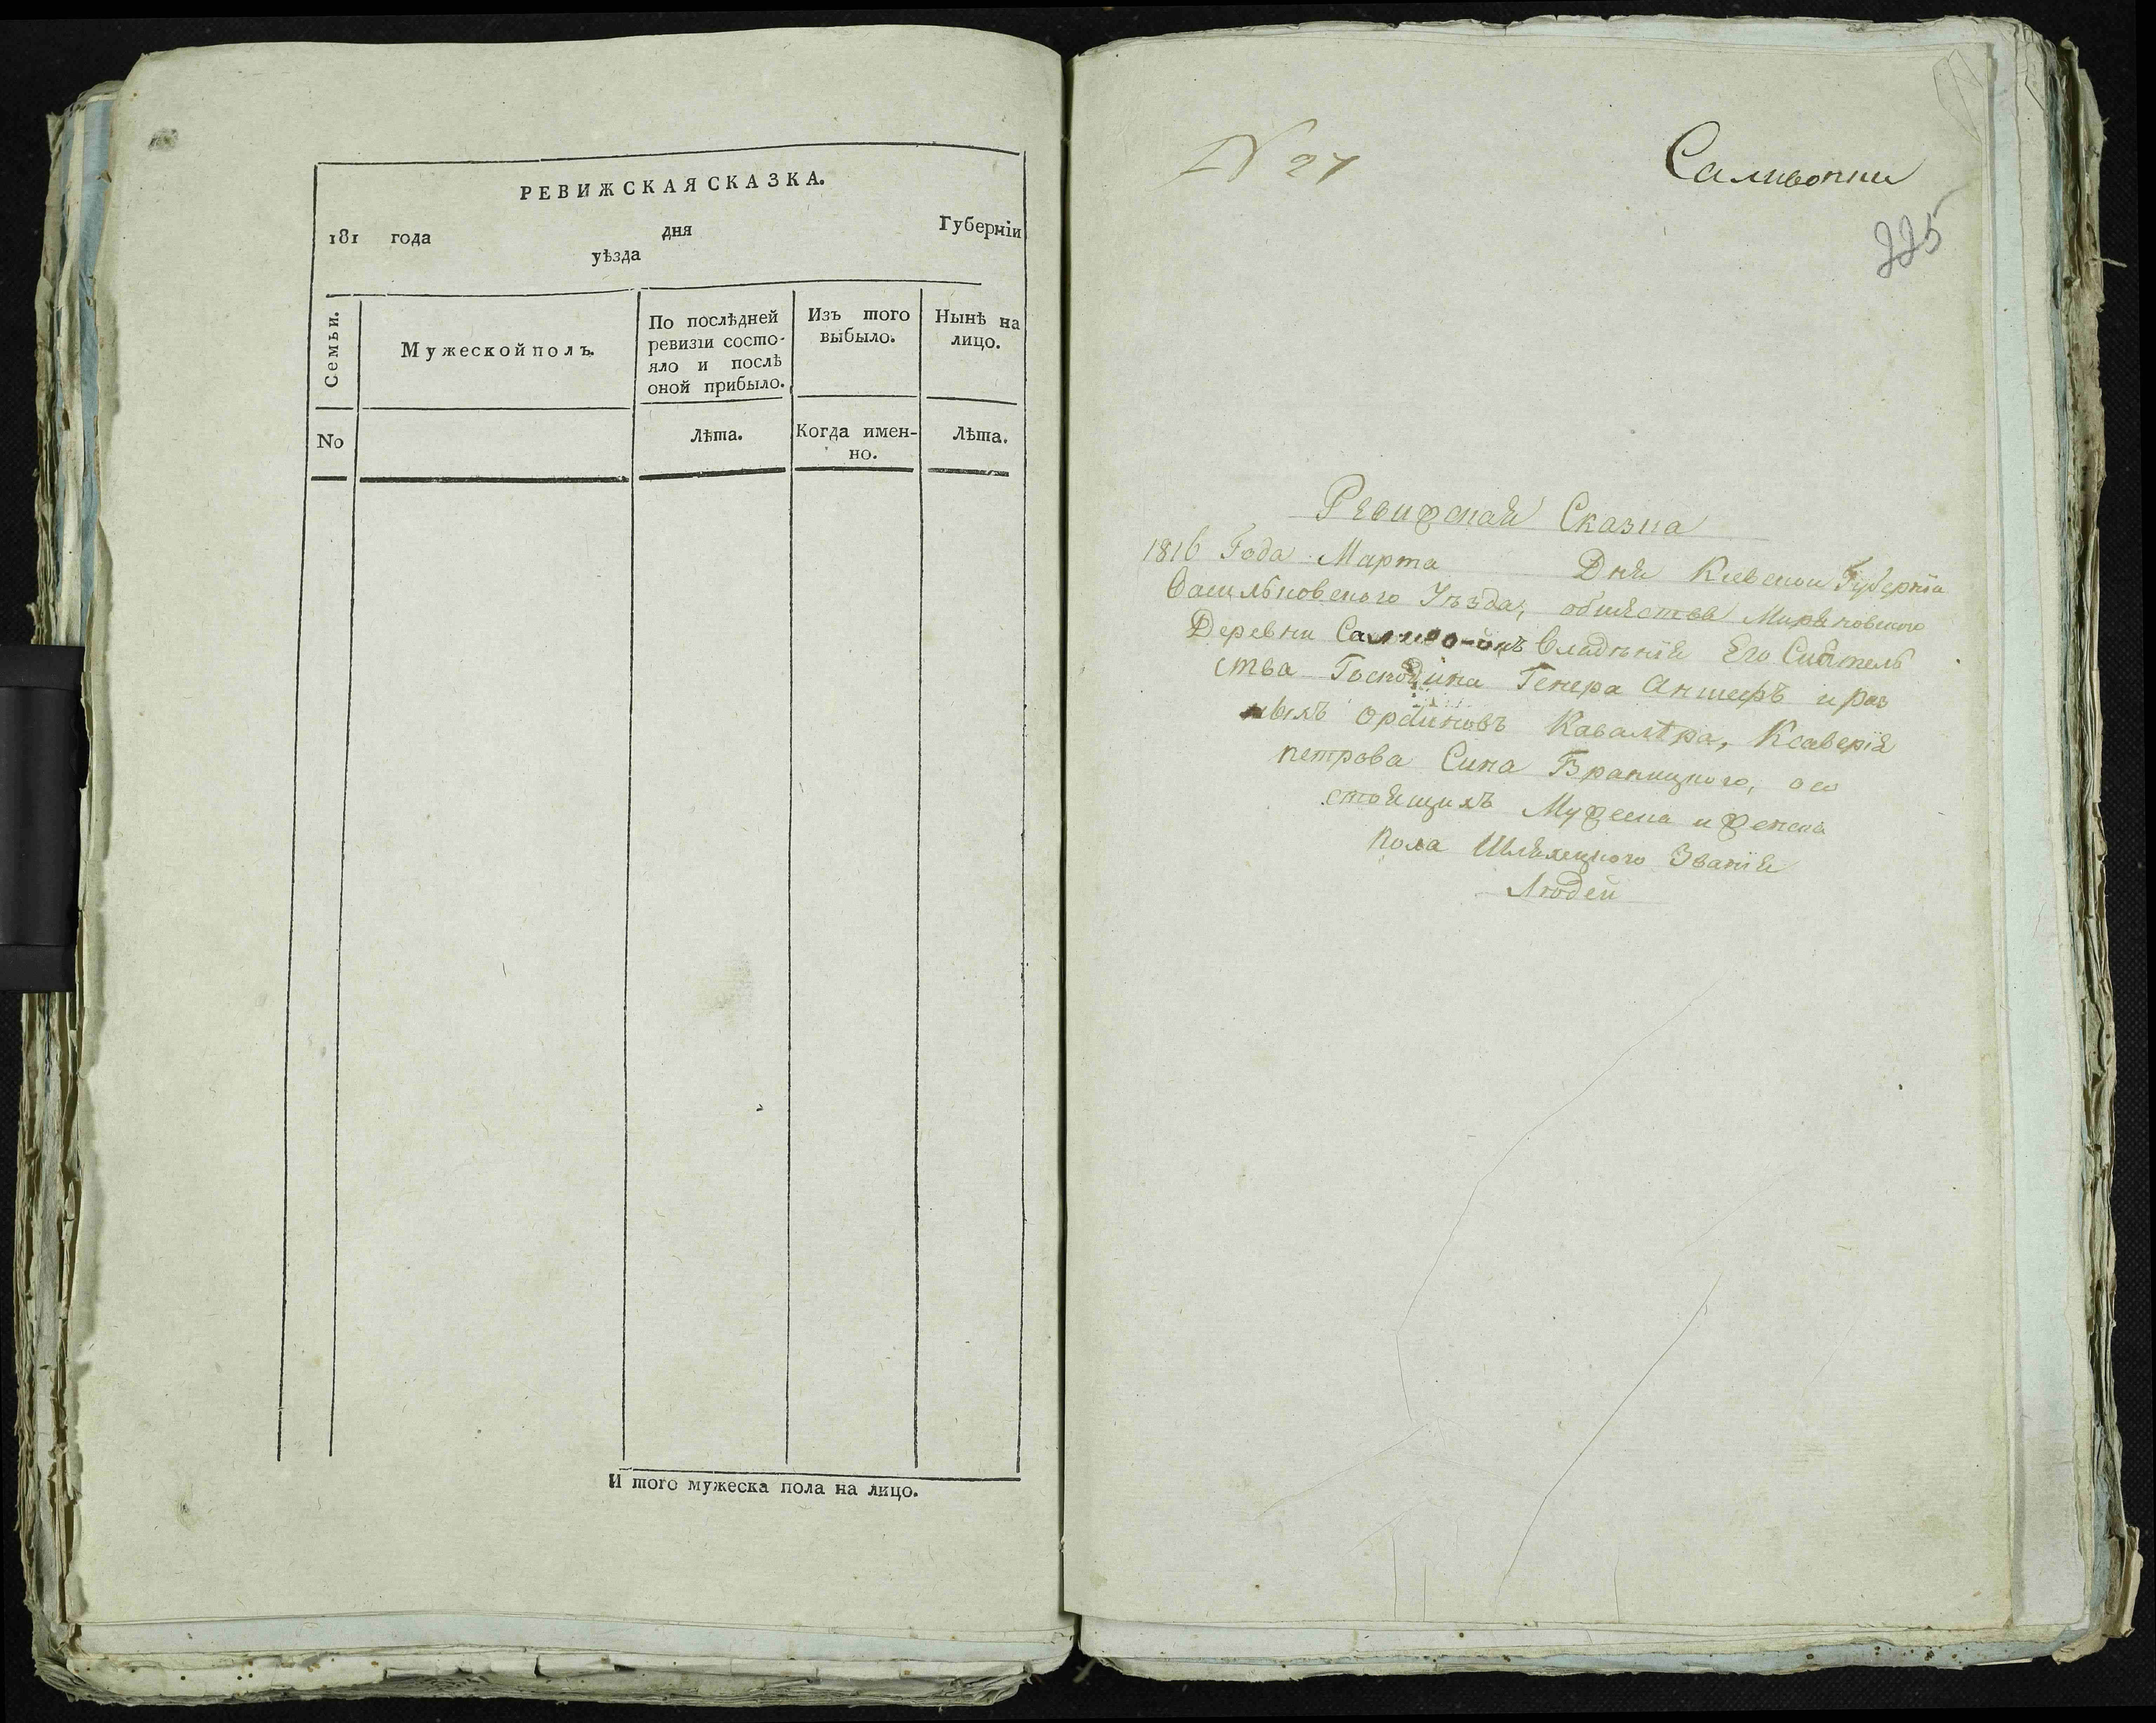 РЕВИЖСКАЯ СКАЗКА.
181 года дня Губерніи
уѣзда
Семьи.
Мужеской полъ.
По послѣдней ревизіи состо-яло и послѣ оной прибыло.
Изъ того выбыло.
Нынѣ на лицо.
No
Лѣта.
Когда имен-но.
Лѣта.
И того мужеска пола на лицо.
N 27
Саливонки
225
Ревижская Сказка
1816 Года Марта Дня Киевской Губерніи
Васильковского Уѣзда, общества Мировского
Деревни Владѣнія Его Сиятель
ства Господина Генера Аншефъ и раз
ныхъ ординовъ Кавалѣра, Ксаверія
петрова Сина Браницкого, о со
стоящихъ Мужеска и женска
пола Шляхецкого Званія
Людей